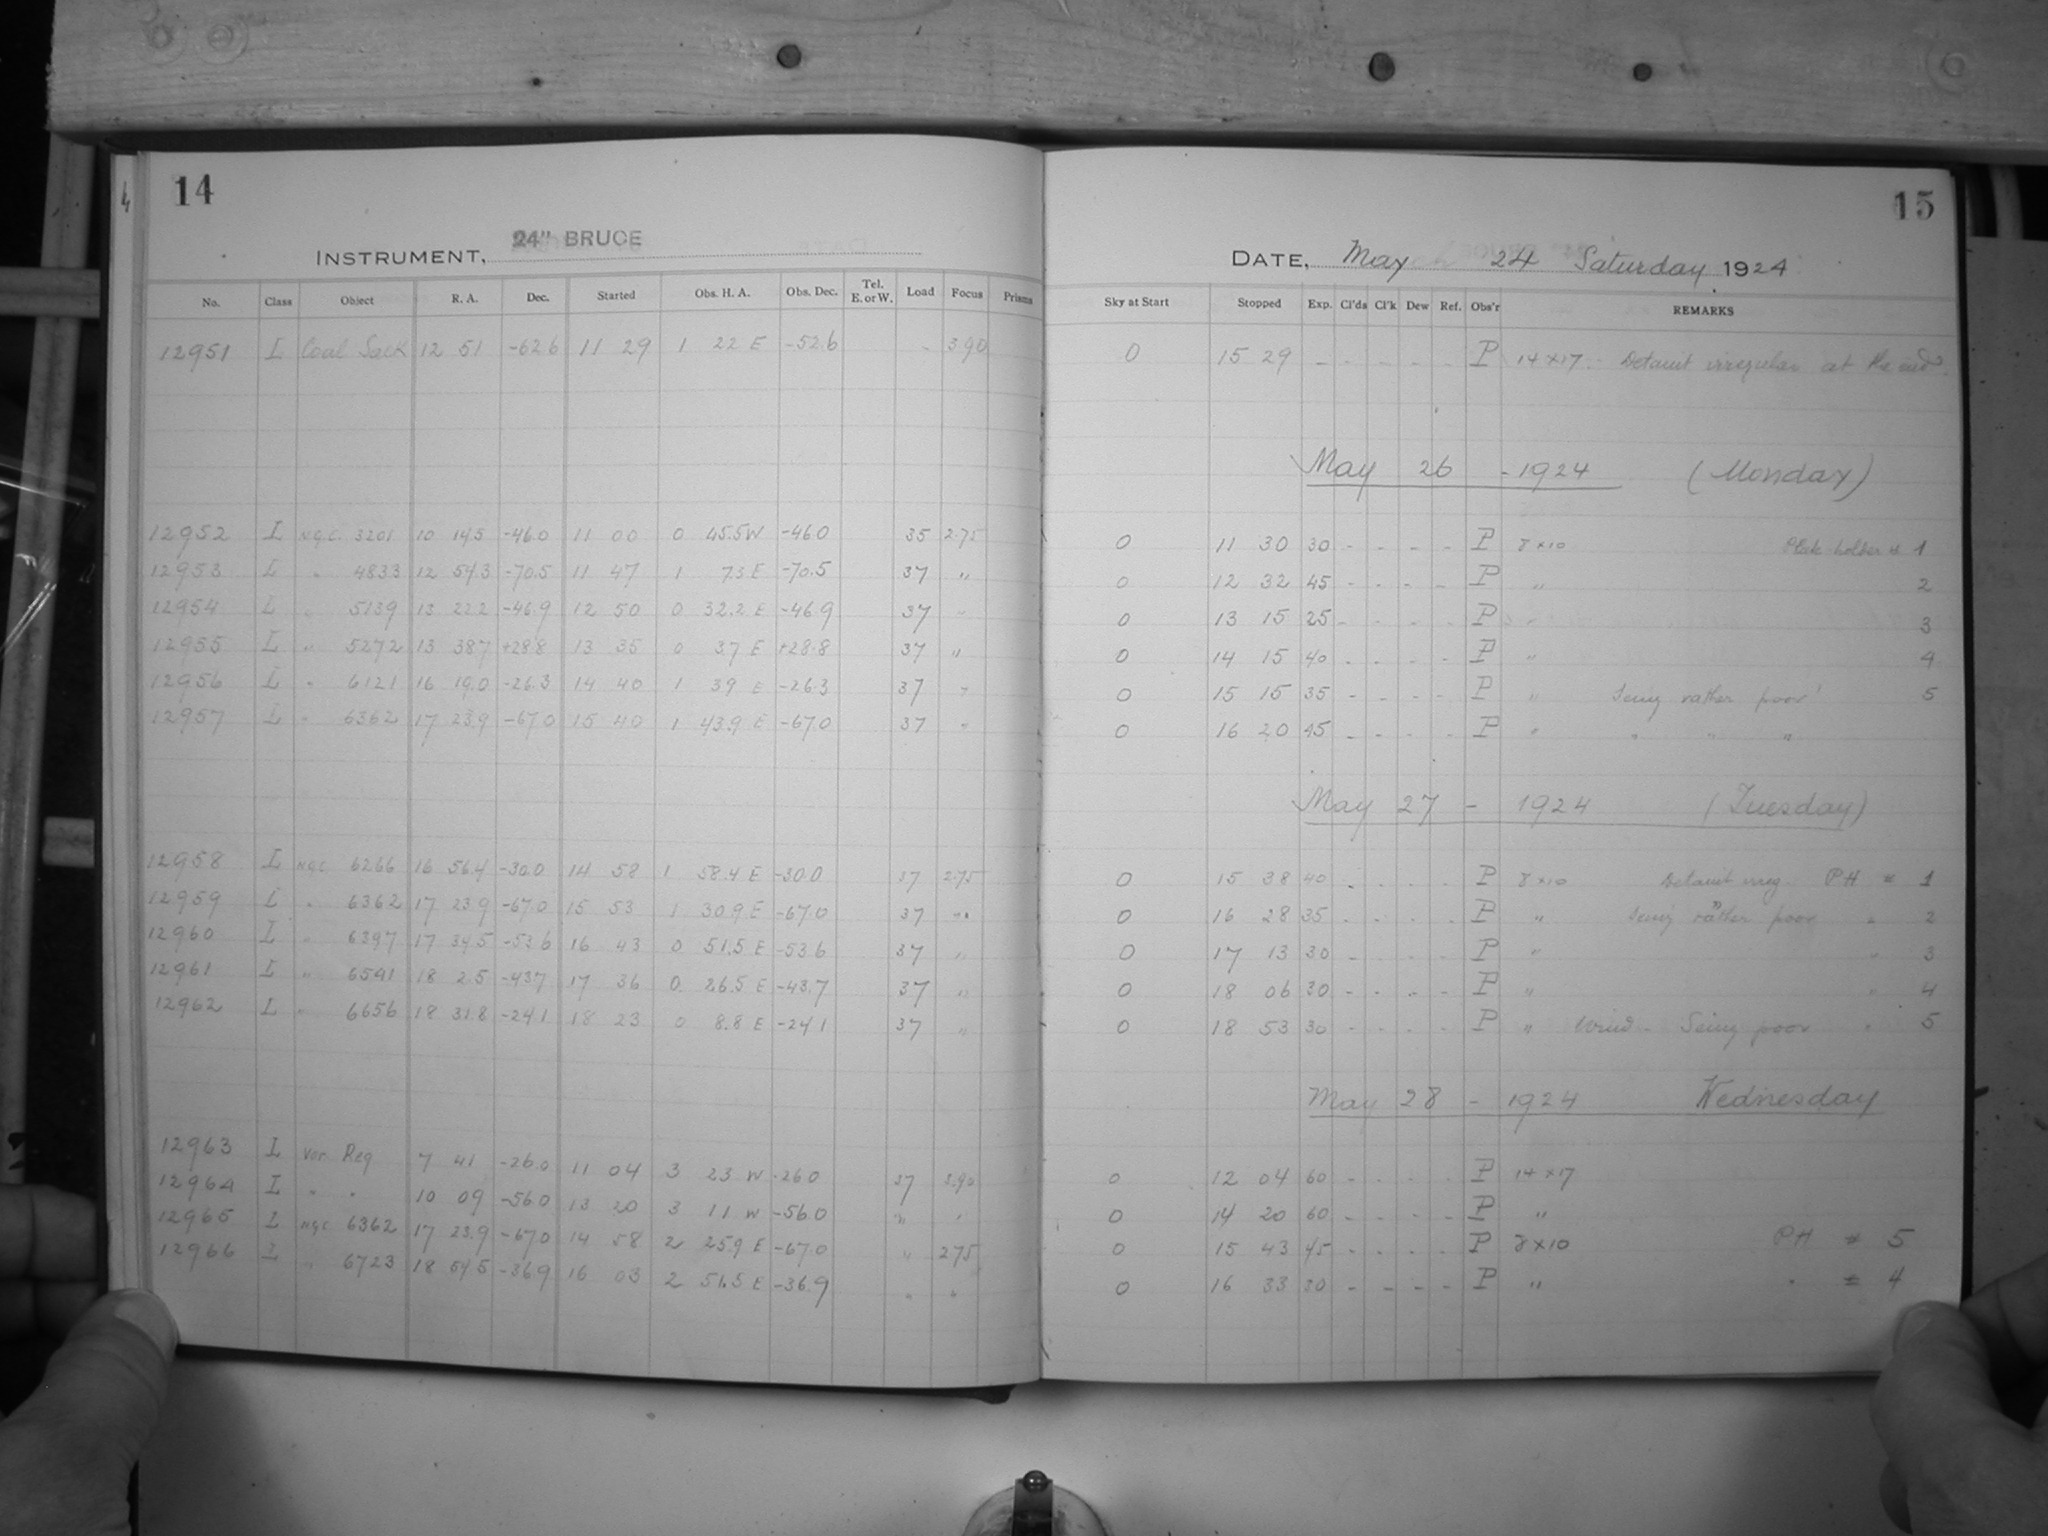 14
INSTRUMENT, 24" BRUCE
No. Class Object R. A. Dec. Started Obs. H. A. Obs. Dec. Tel. E. or W. Load Focus Prisms
12951 I Coal Sack 12 51 -62.6 11 29 1 22 E -52.6 3.90
12952 I NGC 3201 10 14.5 -46.0 11 00 0 45.5 W -46.0 35 2.75
12953 I " 4833 12 54.3 -70.5 11 47 1 7.3 E -70.5 37 "
12954 I " 5139 13 22.2 -46.9 12 50 0 32.2 E -46.9 37 "
12955 I " 5272 13 38.7 +28.8 13 35 0 3.7 E +28.8 37 "
12956 I " 6121 16 19.0 -26.3 14 40 1 39 E -26.3 37 "
12957 I " 6362 17 23.9 -67.0 15 40 1 43.9 E -67.0 37 "
12958 I NGC 6266 16 56.4 -30.0 14 58 1 58.4 E -30.0 37 2.75
12959 I " 6362 17 23.9 -67.0 15 53 1 30.9 E -67.0 37 "
12960 I " 6397 17 34.5 -53.6 16 43 0 51.5 E -53.6 37 "
12961 I " 6541 18 2.5 -43.7 17 36 0 26.5 E -43.7 37 "
12962 I " 6656 18 31.8 -24.1 18 23 0 8.8 E -24.1 37 "
12963 I Var. Reg 7 41 -26.0 11 04 3 23 W -26.0 37 3.90
12964 I " " 10 09 -56.0 13 20 3 11 W -56.0 " "
12965 I NGC 6362 17 23.9 -67.0 14 58 2 25.9 E -67.0 " 2.75
12966 I " 6723 18 54.5 -36.9 16 03 2 51.5 E -36.9 " "
15
DATE, May 24 Saturday 1924
Sky at Start Stopped Exp. Cl'ds Cl'k Dew Ref. Obs'r REMARKS
0 15 29 - - - - - P 14x17 - Detanit irregular at the end.
May 26 - 1924 (Monday)
0 11 30 30 - - - - P 8x10 Plate holder # 1
0 12 32 45 - - - - P " 2
0 13 15 25 - - - - P " 3
0 14 15 40 - - - - P " 4
0 15 15 35 - - - - P " Seeing rather poor 5
0 16 20 45 - - - - P " " " "
May 27 - 1924 (Tuesday)
0 15 38 40 - - - - P 8x10 Detanit irreg. PH # 1
0 16 28 35 - - - - P " Seeing rather poor " 2
0 17 13 30 - - - - P " " 3
0 18 06 30 - - - - P " " 4
0 18 53 30 - - - - P " Wind - Seeing poor " 5
May 28 - 1924 Wednesday
0 12 04 60 - - - - P 14x17
0 14 20 60 - - - - P "
0 15 43 45 - - - - P 8x10 PH # 5
0 16 33 30 - - - - P " " # 4